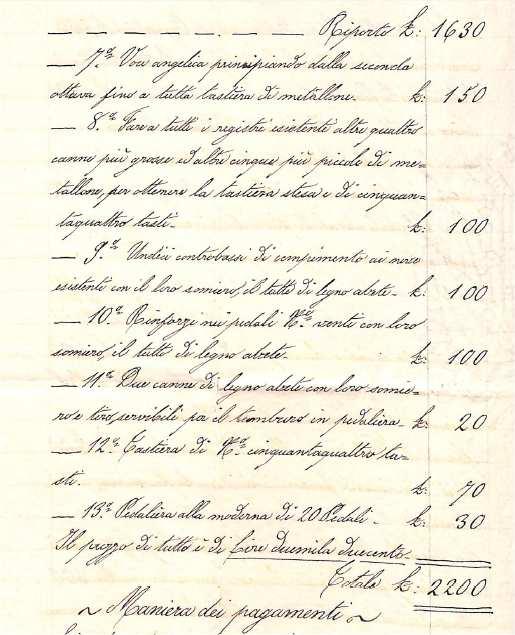 Riporto £: 1630
— 7.ª Voce angelica principiando dalla seconda
ottava fino a tutta tastiera di metallone. £: 150
— 8.ª Fare a tutti i registri esistenti altre quattro
canne più grosse ed altre cinque più piccole di me=
tallone, per ottenere la tastiera stesa e di cinquan=
taquattro tasti. £: 100
— 9.ª Undici controbassi di compimento ai nove
esistenti con il loro somiero, il tutto di legno abete. £: 100
— 10.ª Rinforzi nei pedali N.º venti con loro
somiero, il tutto di legno abete. £: 100
— 11.ª Due canne di legno abete con loro somie=
ro e tiro, servibili per il tamburo in pedaliera. £: 20
— 12.ª Tastiera di N.º cinquantaquattro ta=
sti. £: 70
— 13.ª Pedaliera alla moderna di 20 Pedali. £: 30
Il prezzo di tutto è di Lire duemila duecento.
Totale £: 2200
~ Maniera dei pagamenti ~